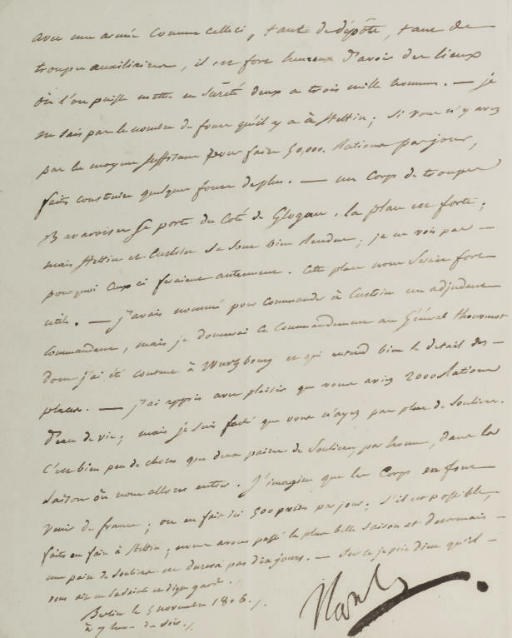 avec une armée comme celle ci, tant de dépôts, tant de
troupes auxiliaires, il est fort heureux d'avoir des lieux
où l'on puisse mettre en sûreté deux a trois mille hommes. — je
ne sais pas le nombre de fours qu'il y a à Stettin; si vous n'y avez
pas les moyens suffisans pour faire 50,000. Rations par jour,
faites construire quelques fours de plus. — un Corps de troupes
Bavaroises se porte du Coté de Glogau. la place est forte;
mais Stettin et Custrin se sont bien rendus; je ne vois pas —
pourquoi Ceux ci feraient autrement. Cette place nous serait fort
utile. — j'avais nommé pour commander à Custrin un adjudant
commandant, mais je donnerai ce commandement au Général Thouvenot
dont j'ai été content à Wurtzbourg et qui entend bien le détail des —
places. — j'ai appris avec plaisir que vous aviez 2000 Rations
d'eau de vie; mais je suis faché que vous n'ayez pas plus de souliers.
C'est bien peu de chose que deux paires de souliers par homme, dans la
saison où nous allons entrer. J'imagine que les Corps en font
venir de france; on en fait ici 500 paires par jour; s'il est possible,
faites en faire à Stettin; nous avons passé la plus belle saison et désormais —
une paire de souliers ne durera pas dix jours. — Sur ce je prie dieu qu'il —
vous ait en sa sainte et digne garde.
Berlin le 5 novembre 1806.
à 7 heures du soir.